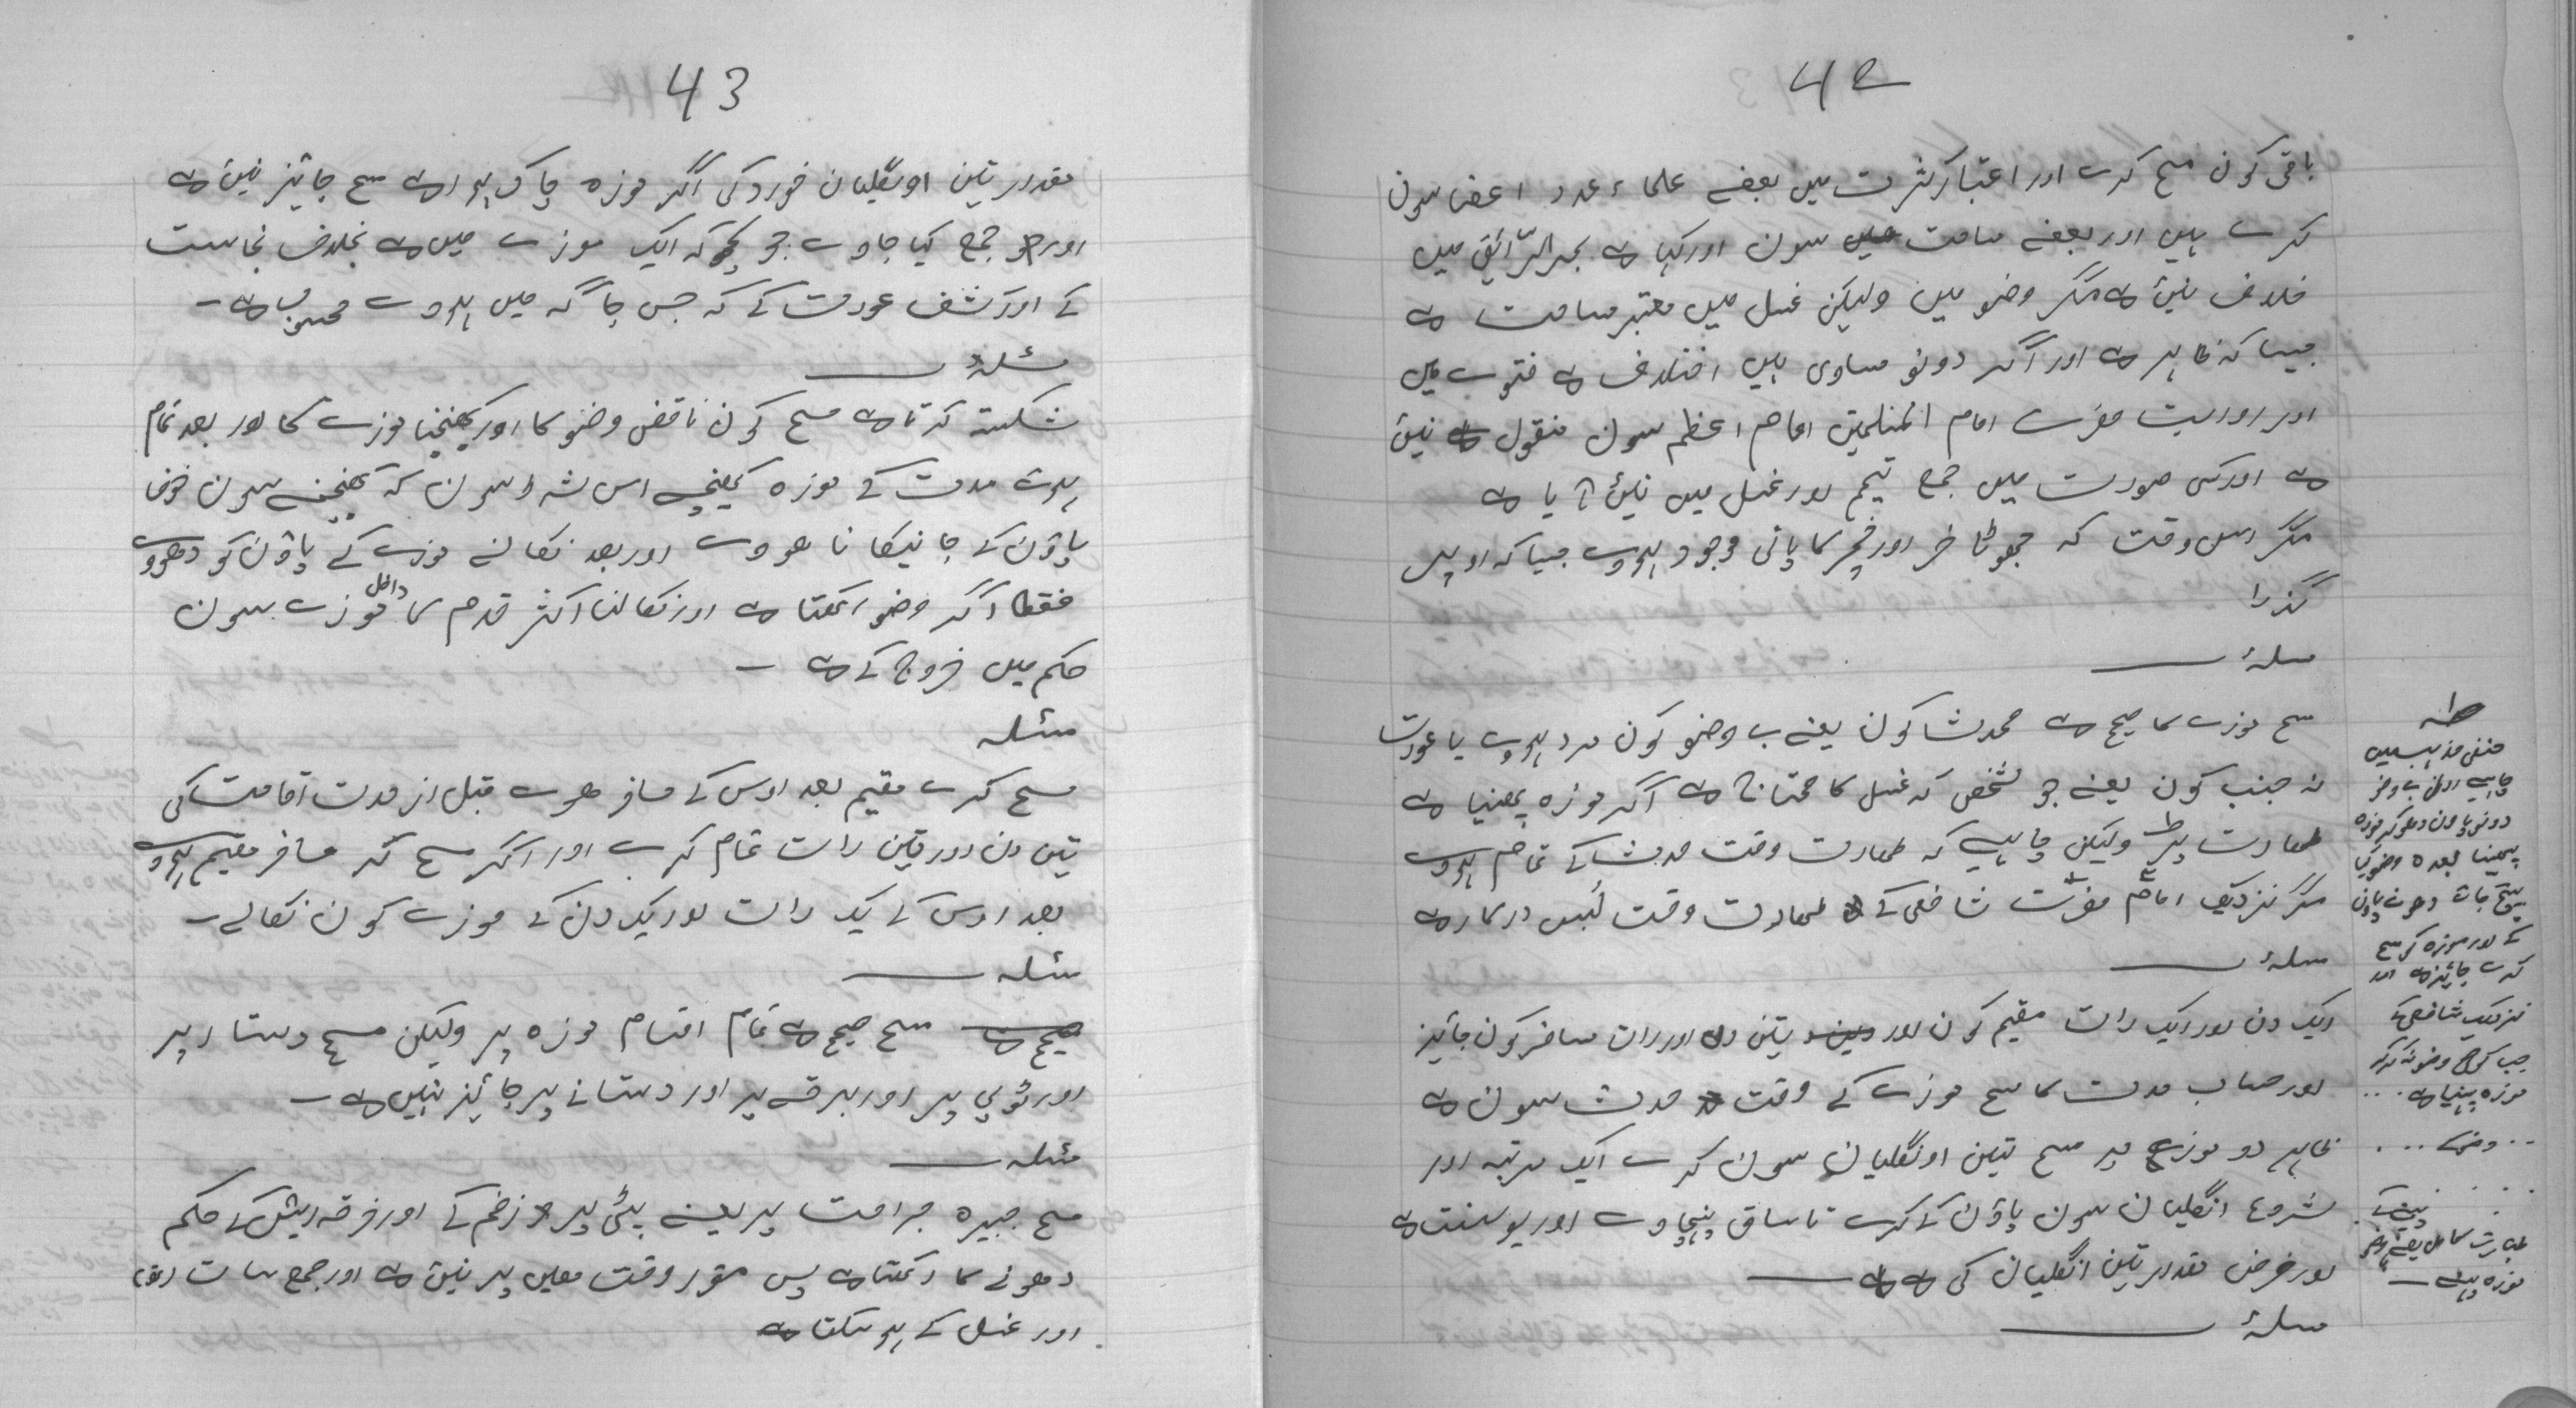 42
باقی کون مسح کرے اور اعتبار کثرت میں بعضے علماء عدد اعضا سون
کرے ہیں اور بعضے مساحت سون اور کہا ہے بحر الرّائق میں
خلاف نیں ہے مگر وضو میں ولیکن غسل میں معتبر مساحت ہے
جیسا کہ ظاہر ہے اور اگر دونو مساوی ہیں اختلاف ہے فتوے میں
اور روایت حضرت امام المسلمین امام اعظم سون منقول نیں
ہے اور کسی صورت میں جمع تیمم اور غسل میں نیں آیا ہے
مگر اس وقت کہ جھوٹا خر اور خچر کا پانی موجود ہووے جیسا کہ اوپر
گذرا
مسلۂ
مسح موزے کا صحیح ہے محدث کون یعنے بے وضو کون مرد ہووے یا عورت
نہ جنب کون یعنے جو شخص کہ غسل کا محتاج ہے اگر موزہ پھنیا ہے
طہارت پر ولیکن چاہیے کہ طہارت وقت حدث کے تمام ہووے
مگر نزدیک امام حضرت شافعی کے طہارت وقت لبس درکار ہے
مسلۂ
ایک دن اور ایک رات مقیم کون اور تین دن اور رات مسافر کون جائیز
اور حساب مدت کا مسح موزے کے وقت حدث سون ہے
ظاہر دو موزے پر مسح تین اونگلیان سون کرے ایک مرتبہ اور
شروع انگلیان سون پاؤن کے کرے تا ساق پنہچاوے اور یو سنت ہے
اور فرض مقدار تین انگلیان کی ہے
مسلۂ
حنفی مذہب میں
چاہیے اول بے وضو
دونو پاون دھوکر موزہ
پہنیا بعدہ وضو کیا
دھوے پاون
کے اور موزہ کو مسح
کرے جائیز ہے اور
نزدیک شافعی کے
جب کوئی وضو نہ کرکر
موزہ پہنیا ہے ...
.. وضو کے ...
طہارت کامل یعنے وضو
موزہ پہنے
43
مقدار تین اونگلیان خورد کی اگر موزہ چاک ہوا ہے مسح جائیز نیں ہے
اور جمع کیا جاوے جو کچھ کہ ایک موزے میں ہے بخلاف نجاست
کے اور کشف عورت کے کہ جس جاگہ میں ہووے محسوب ہے۔
مسئلۂ
شکستہ کرتا ہے مسح کون ناقض وضو کا اور کھینچنا موزے کا اور بعد تمام
ہوے مدت کے موزہ کھینچے اس شرط سون کہ کھینچنے سون خوف
پاؤن کے جانیکا نا ہووے اور بعد نکالنے موزے کے پاؤن کو دھووے
فقط اگر وضو رکھتا ہے اور نکالنا اکثر قدم کا داخل موزے سون
حکم میں خروج کے ہے۔
مسئلہ
مسح کرے مقیم بعد اوس کے مسافر ہوے قبل از مدت اقامت کی
تین دن اور تین رات تمام کرے اور اگر مسح کر مسافر مقیم ہووے
بعد اوس کے یک رات اور یک دن کے موزے کون نکالے۔
مسئلہ
مسح صحیح ہے تمام اقسام موزہ پر ولیکن مسح دستار پر
اور ٹوپی پر اور برقے پر اور دستانے پر جائیز نہیں ہے۔
مسئلہ
مسح جبیرہ جراحت پر یعنے پٹی پر زخم کے اور خرقہ ریش کے حکم
دھونے کا رکھتا ہے پس مقرر وقت معین پر نیں ہے اور جمع سات
اور غسل کے ہو سکتا ہے